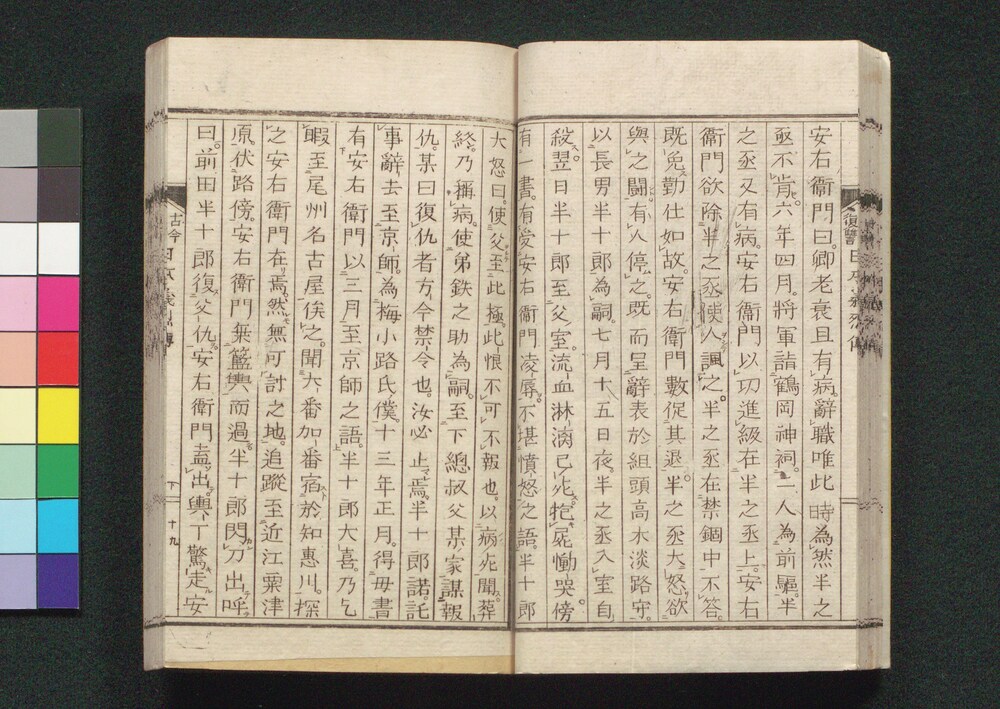 安右衞門曰。卿老衰且有病。辭職唯此時為然半之
丞不肯。六年四月。將軍詣鶴岡神祠。二人為前驅。半
之丞又有病。安右衞門以功進級在半之丞上。安右
衞門欲除半之丞使人諷之。半之丞在禁錮中不答。
既免勤仕如故。安右衞門數促其退。半之丞大怒欲
與之鬪。有人停之。既而呈辭表於組頭高木淡路守。
以長男半十郎為嗣。七月十五日夜。半之丞入室自
殺。翌日半十郎至父室。流血淋漓已死。抱屍慟哭。傍
有一書。有受安右衞門凌辱。不堪憤怒之語。半十郎
大怒曰。使父至此極。此恨不可不報也。以病死聞。葬
終。乃稱病。使弟鉄之助為嗣。至下總叔父某家謀報
仇。某曰復仇者方今禁令也。汝必止焉。半十郎諾。託
事辭去至京師。為梅小路氏僕。十三年正月。得母書
有安右衞門以三月至京師之語。半十郎大喜。乃乞
暇至尾州名古屋俟之。聞大番加番宿於知惠川。探
之安右衞門在焉。然無可討之地。追蹤至近江粟津
原。伏路傍。安右衞門乗籃輿而過。半十郎閃刀出呼
曰。前田半十郎復父仇。安右衞門盍出。輿丁驚走。安
古今日本義烈傳
下
十九